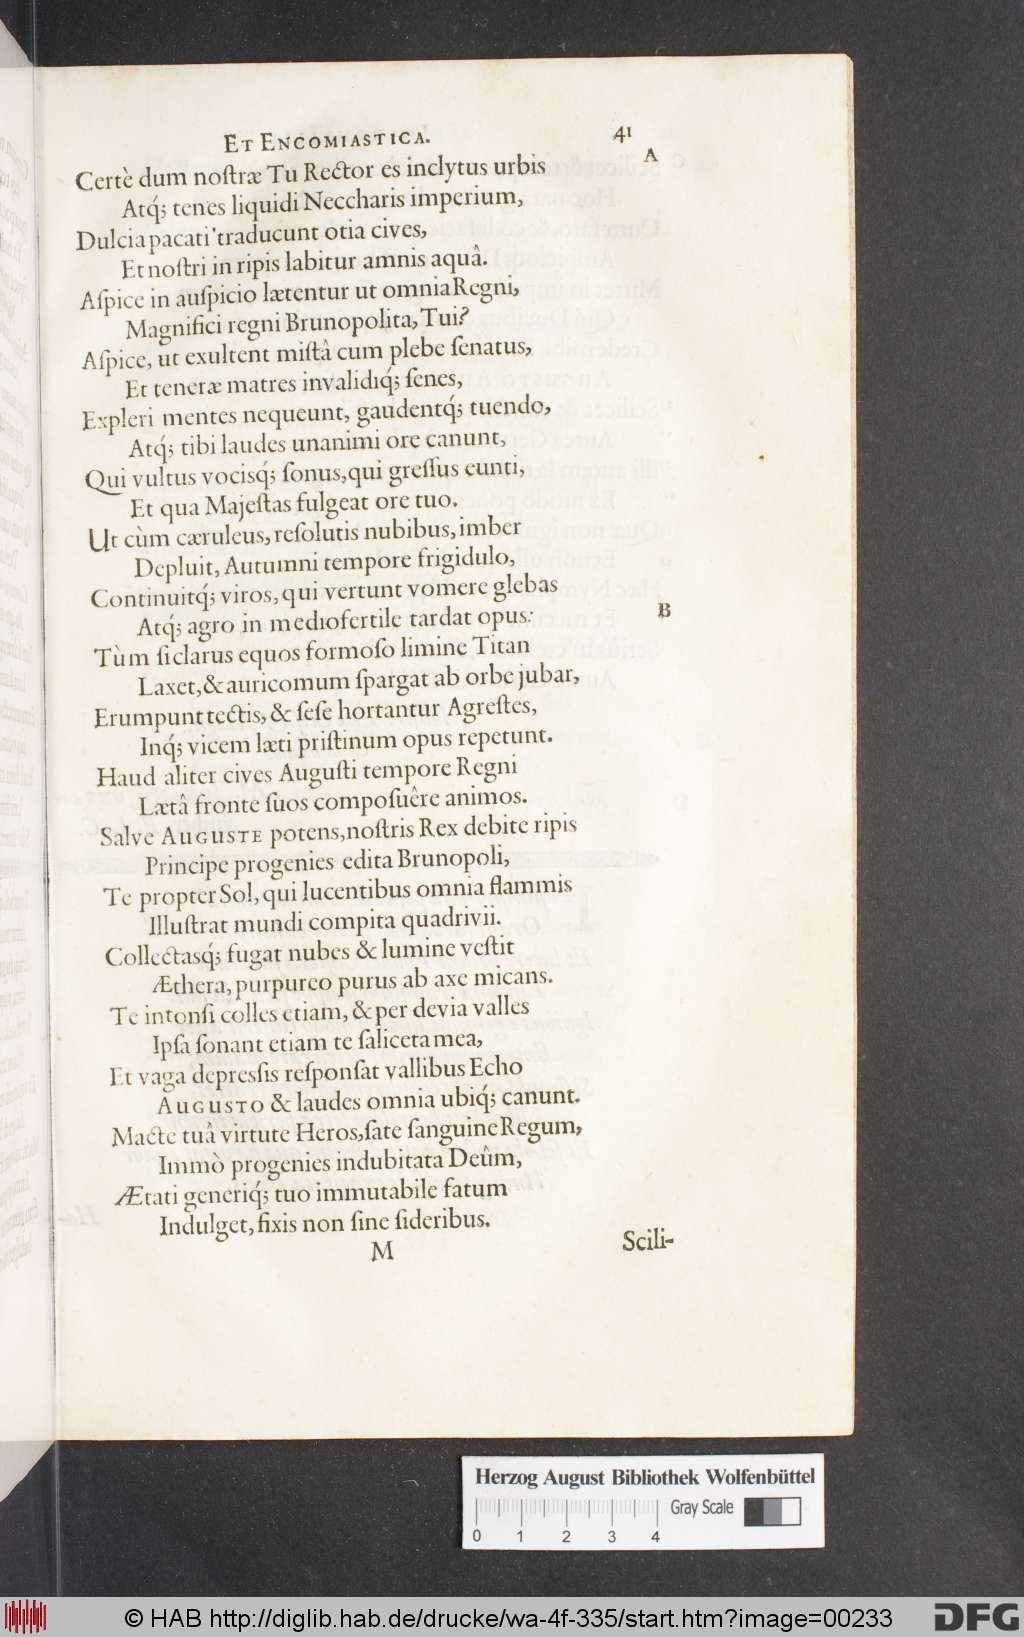 ET ENCOMIASTICA. 41
A
Certè dum noſtræ Tu Rector es inclytus urbis
Atq́; tenes liquidi Neccharis imperium,
Dulcia pacati traducunt otia cives,
Et noſtri in ripis labitur amnis aquâ.
Aſpice in auſpicio lætentur ut omnia Regni,
Magnifici regni Brunopolita, Tui?
Aſpice, ut exultent miſtâ cum plebe ſenatus,
Et teneræ matres invalidiq́; ſenes,
Expleri mentes nequeunt, gaudentq́; tuendo,
Atq́; tibi laudes unanimi ore canunt,
Qui vultus vocisq́; ſonus, qui greſſus eunti,
Et qua Majeſtas fulgeat ore tuo.
Ut cùm cæruleus, reſolutis nubibus, imber
Depluit, Autumni tempore frigidulo,
Continuitq́; viros, qui vertunt vomere glebas
B
Atq́; agro in medio fertile tardat opus:
Tùm ſi clarus equos formoſo limine Titan
Laxet, & auricomum ſpargat ab orbe jubar,
Erumpunt tectis, & ſeſe hortantur Agreſtes,
Inq́; vicem læti priſtinum opus repetunt.
Haud aliter cives Auguſti tempore Regni
Lætâ fronte ſuos compoſuêre animos.
Salve AUGUSTE potens, noſtris Rex debite ripis
Principe progenies edita Brunopoli,
Te propter Sol, qui lucentibus omnia flammis
Illuſtrat mundi compita quadrivii.
Collectasq́; fugat nubes & lumine veſtit
Æthera, purpureo purus ab axe micans.
Te intonſi colles etiam, & per devia valles
Ipſa ſonant etiam te ſaliceta mea,
Et vaga depreſſis reſponſat vallibus Echo
AUGUSTO & laudes omnia ubiq́; canunt.
Macte tuâ virtute Heros, ſate ſanguine Regum,
Immò progenies indubitata Deûm,
Ætati generiq́; tuo immutabile fatum
Indulget, fixis non ſine ſideribus.
M Scili-
Herzog August Bibliothek Wolfenbüttel
Gray Scale
0 1 2 3 4
© HAB http://diglib.hab.de/drucke/wa-4f-335/start.htm?image=00233
DFG